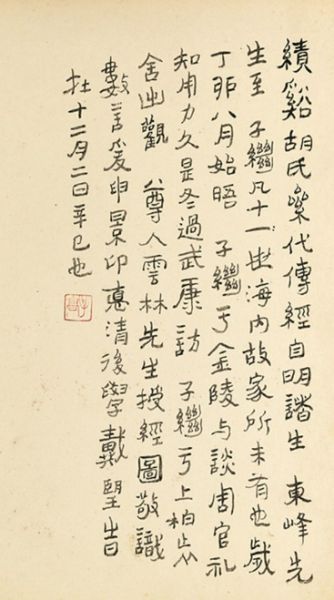 績谿胡氏絫代傳經自明諸生東峰先
生至子繼凡十一世海内故家所未有也歲
丁卯八月始晤子繼于金陵与談周官礼
知用力久是冬過武康訪子繼于上柏
舍出觀尊人雲林先生授經圖敬識
數言爰申景卬悳清後學戴朢旹
在十二月二日辛巳也